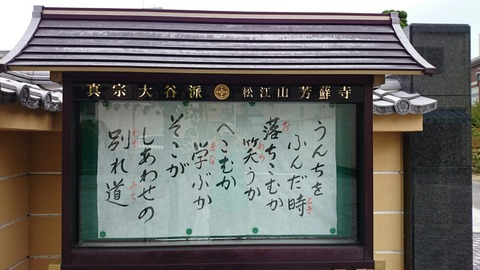 真宗大谷派 松江山 芳寺
うんちを
ふんだ時
とき
落ちこむか
お
笑うか
わら
へこむか
学ぶか
まな
そこが
しあわせの
別れ道
わか みち